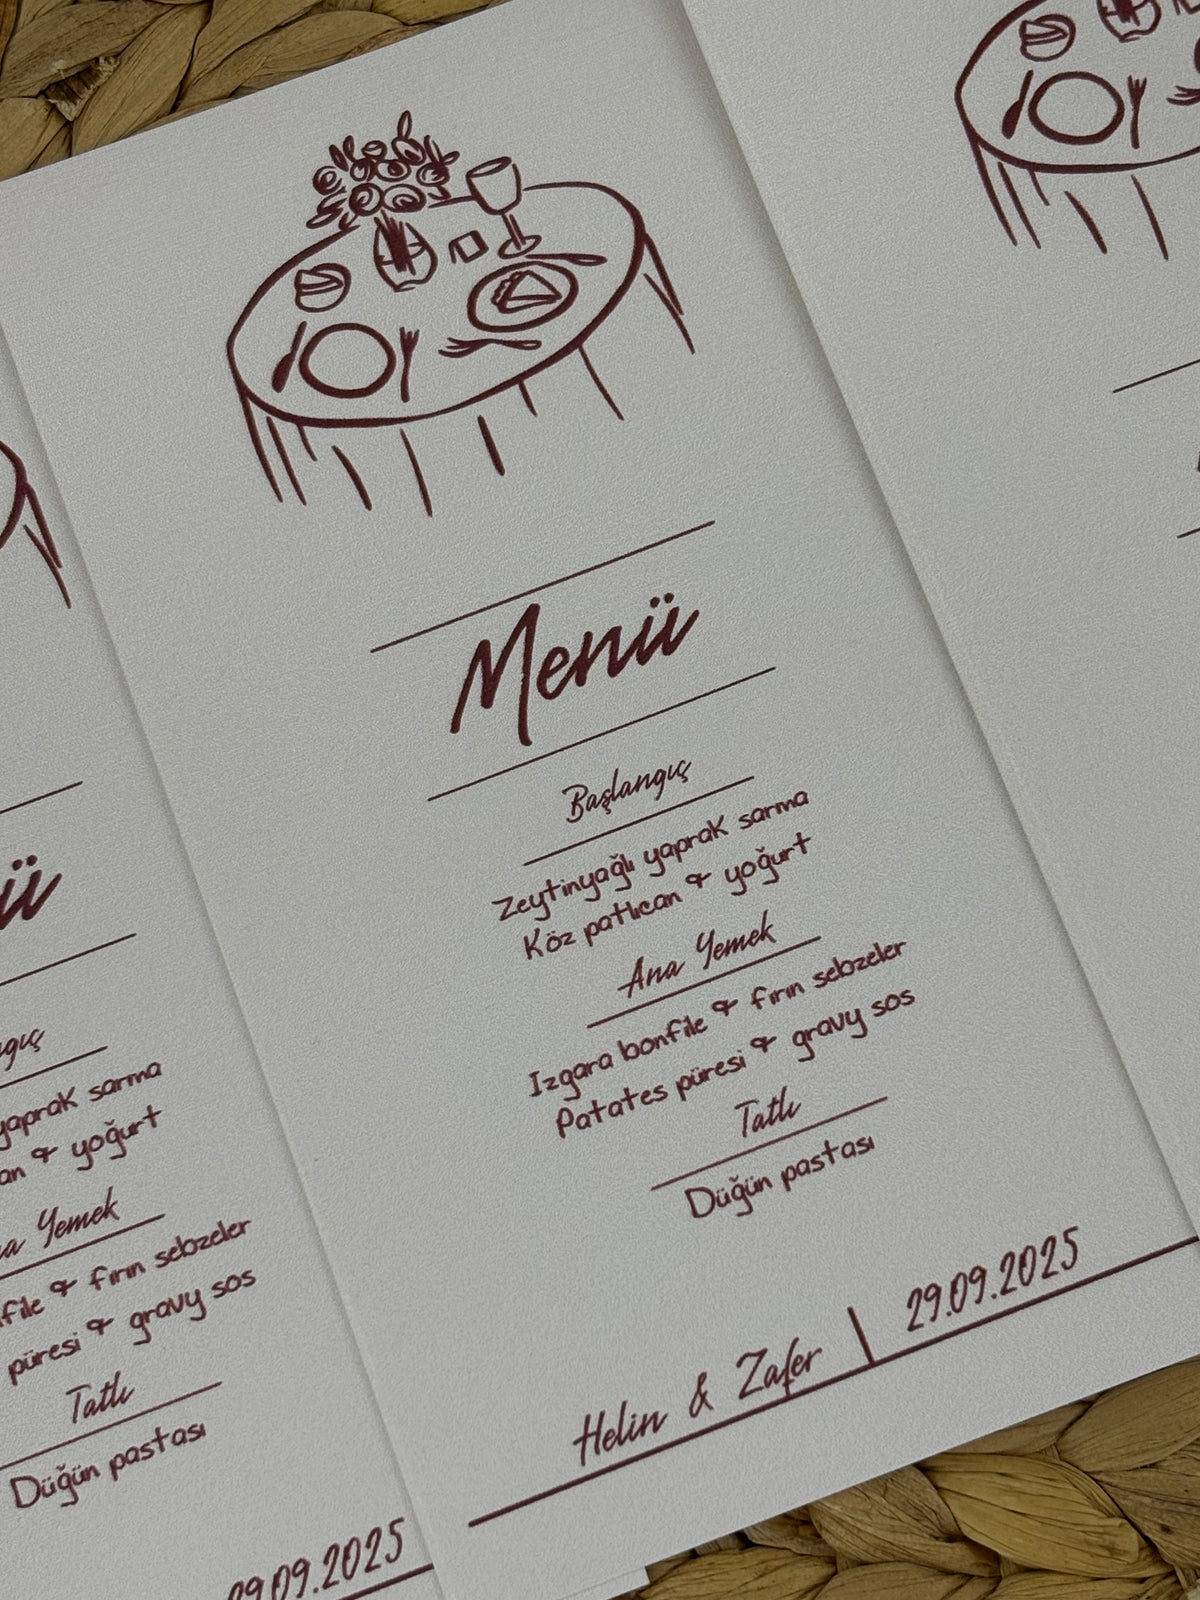 Menü
Başlangıç
Zeytinyağlı yaprak sarma
Köz patlıcan & yoğurt
Ana Yemek
Izgara bonfile & fırın sebzeler
Patates püresi & gravy sos
Tatlı
Düğün pastası
Helin & Zafer | 29.09.2025
ü
ngıç
yaprak sarma
an & yoğurt
na Yemek
file & fırın sebzeler
püresi & gravy sos
Tatlı
Düğün pastası
29.09.2025